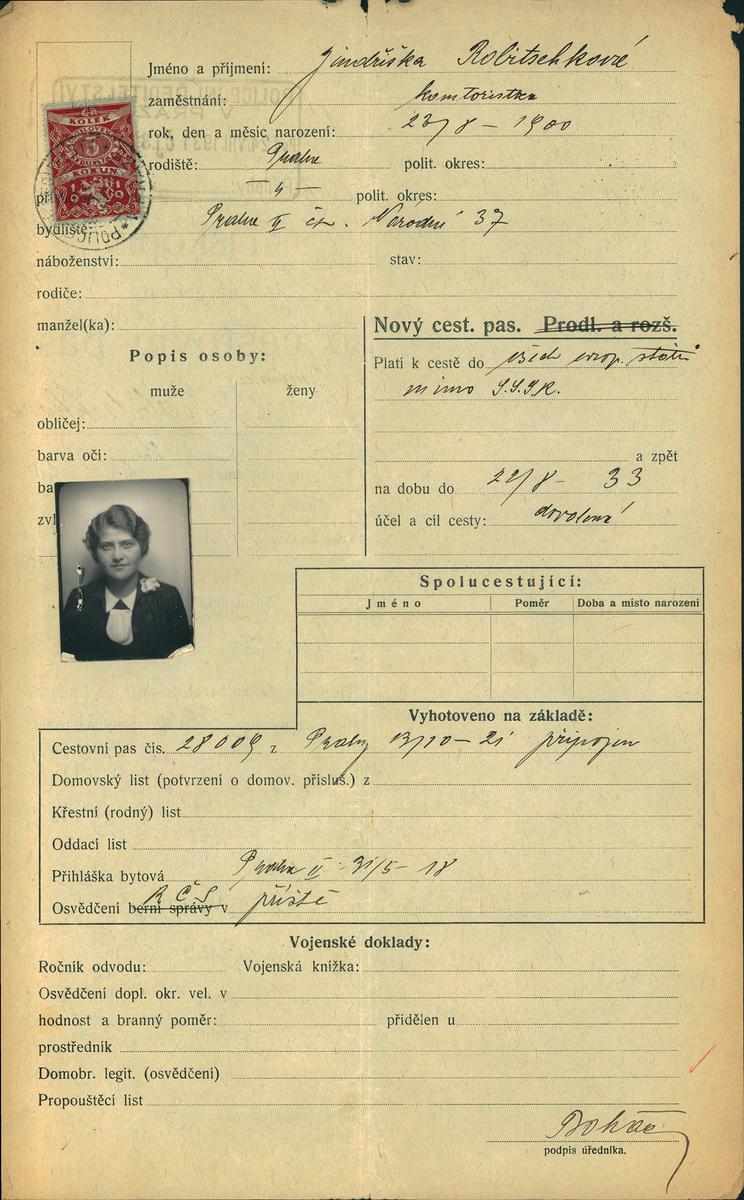 Jméno a příjmení: Jindřiška Robitschková
zaměstnání: kontoristka
rok, den a měsíc narození: 23/8 - 1900
rodiště: Praha polit. okres:
- " - polit. okres:
bydliště: Praha II čp. Národní 37
náboženství: stav:
rodiče:
manžel(ka):
Nový cest. pas. Prodl. a rozš.
Popis osoby:
muže ženy
obličej:
barva očí:
ba
zvl
Platí k cestě do všech evrop. států
mimo S.S.S.R.
a zpět
na dobu do 22/8 - 33
účel a cíl cesty: dovolená
KOLEK
5
KORUN
19
Spolucestující:
Jméno Poměr Doba a místo narození
Vyhotoveno na základě:
Cestovní pas čís. 28009 z Prahy 13/10 - 21 připojen
Domovský list (potvrzení o domov. přísluš.) z
Křestní (rodný) list
Oddací list
Přihláška bytová Praha II 31/5 - 18
Osvědčení berní správy v RČS příště
Vojenské doklady:
Ročník odvodu: Vojenská knížka:
Osvědčení dopl. okr. vel. v
hodnost a branný poměr: přidělen u
prostředník
Domobr. legit. (osvědčení)
Propouštěcí list
Boháč
podpis úředníka.